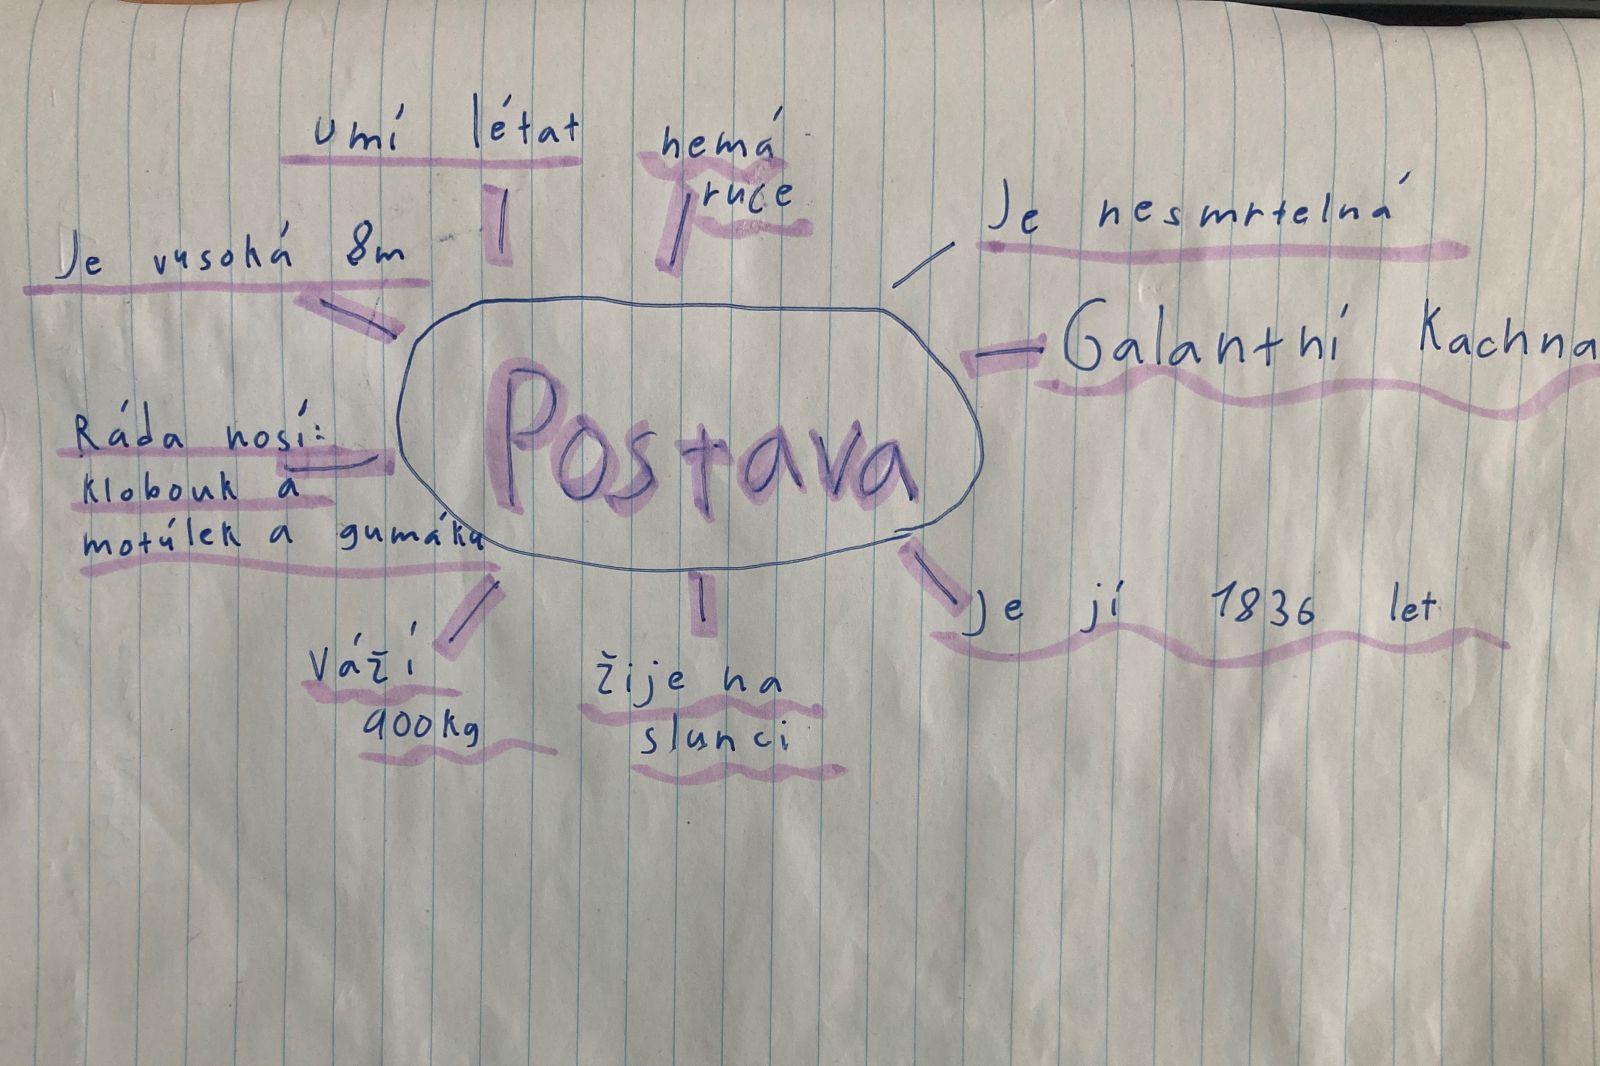 umí létat
nemá
ruce
Je nesmrtelná
Je vysoká 8m
Galantní Kachna
Postava
Ráda nosí:
klobouk a
motýlek a gumáky
Je jí 1836 let
Váží
900kg
žije na
slunci